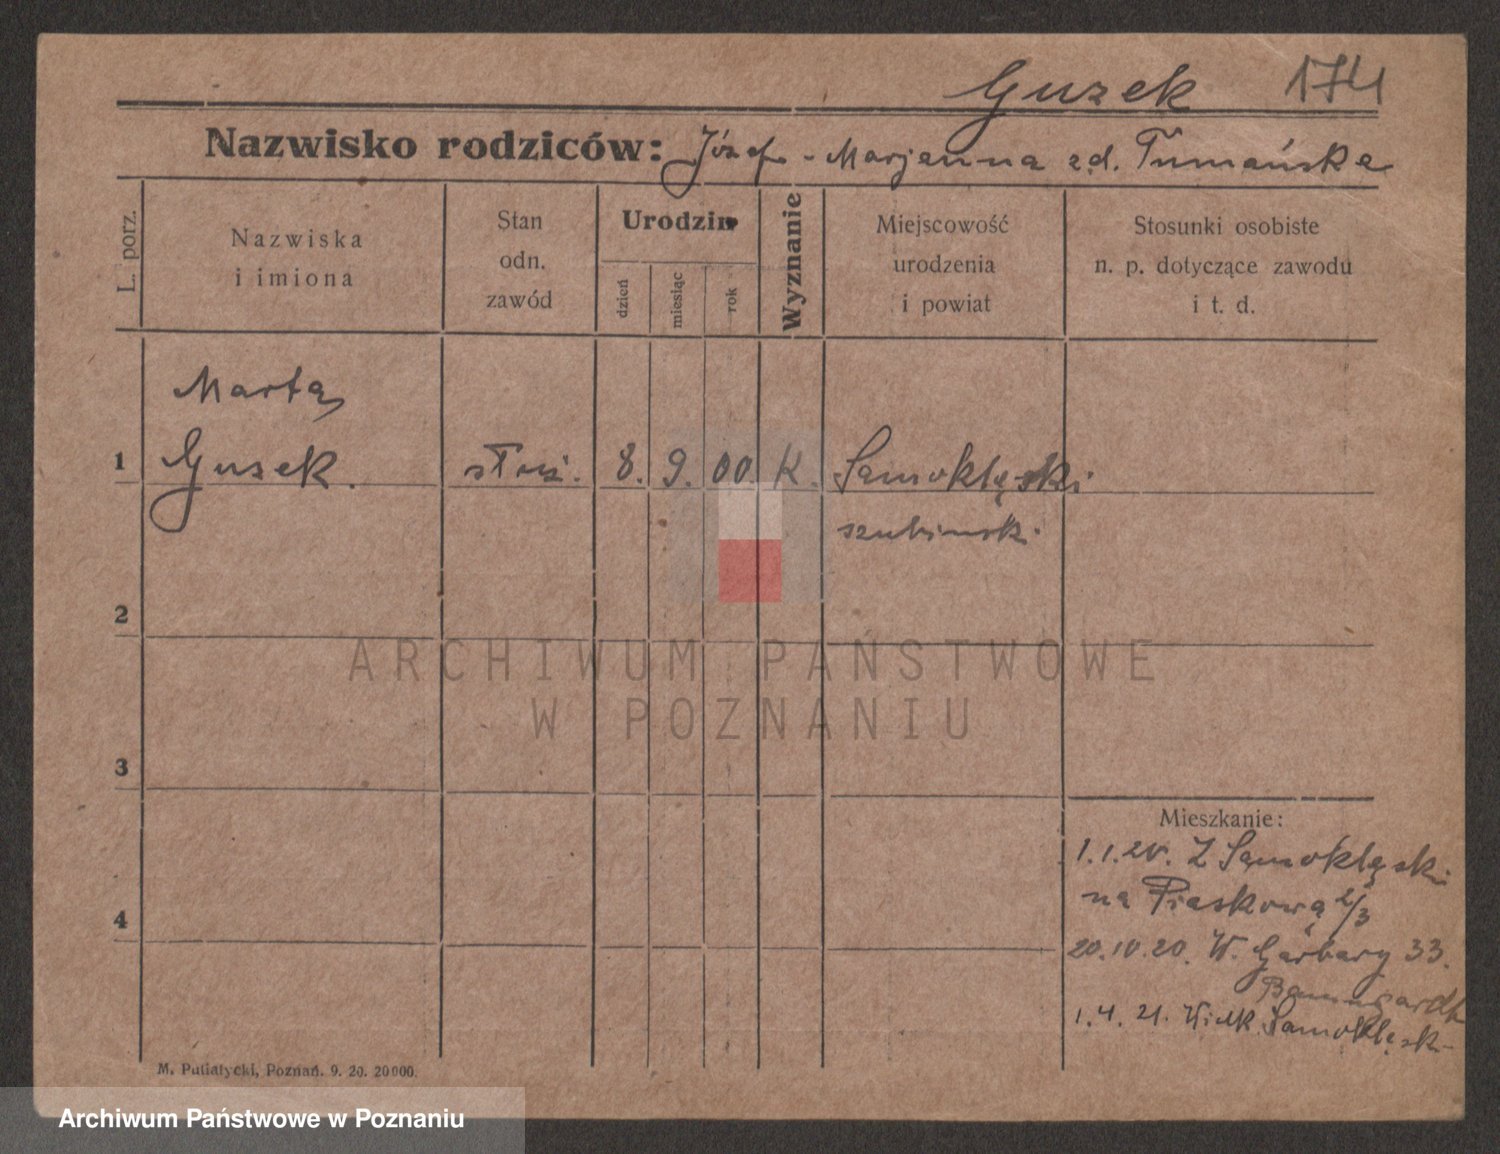 Guzek 174
Nazwisko rodziców: Józef - Marjanna zd. Tumańska
L. porz.
Nazwiska
i imiona
Stan
odn.
zawód
Urodzin
dzień
miesiąc
rok
Wyznanie
Miejscowość
urodzenia
i powiat
Stosunki osobiste
n. p. dotyczące zawodu
i t. d.
Marta
1 Guzek. służ. 8. 9. 00. K. Samoklęski
szubinski
2
3
4
ARCHIWUM PAŃSTWOWE
W POZNANIU
Mieszkanie:
1.1.20. Z Samoklęski
na Piaskową 2/3
20.10.20. W. Garbary 33.
Baumgardt
1.4.21. Wielk. Samoklęski
M. Putiatycki, Poznań. 9. 20. 20000.
Archiwum Państwowe w Poznaniu